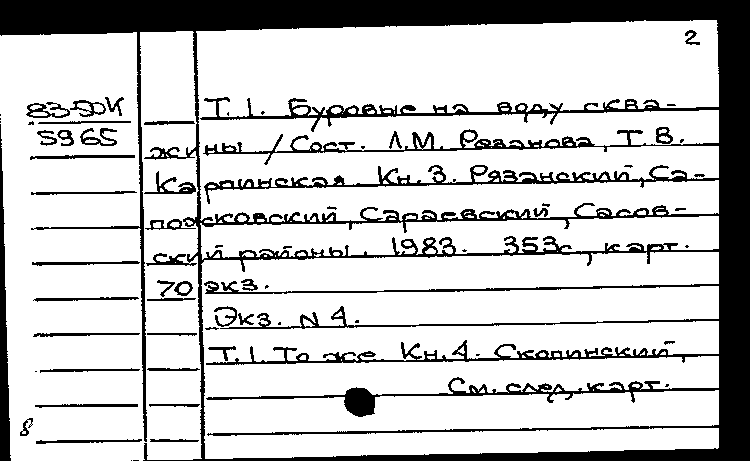 2
83-50К Т. 1. Буровые на воду сква-
5965 жины / Сост. Л.М. Рязанова, Т.В.
Карпинская. Кн. 3. Рязанский, Са-
пожковский, Сараевский, Сасов-
ский районы. 1983. 353с, карт.
70 экз.
Экз. N 4.
Т. 1. То же. Кн. 4. Скопинский,
См. след. карт.
8